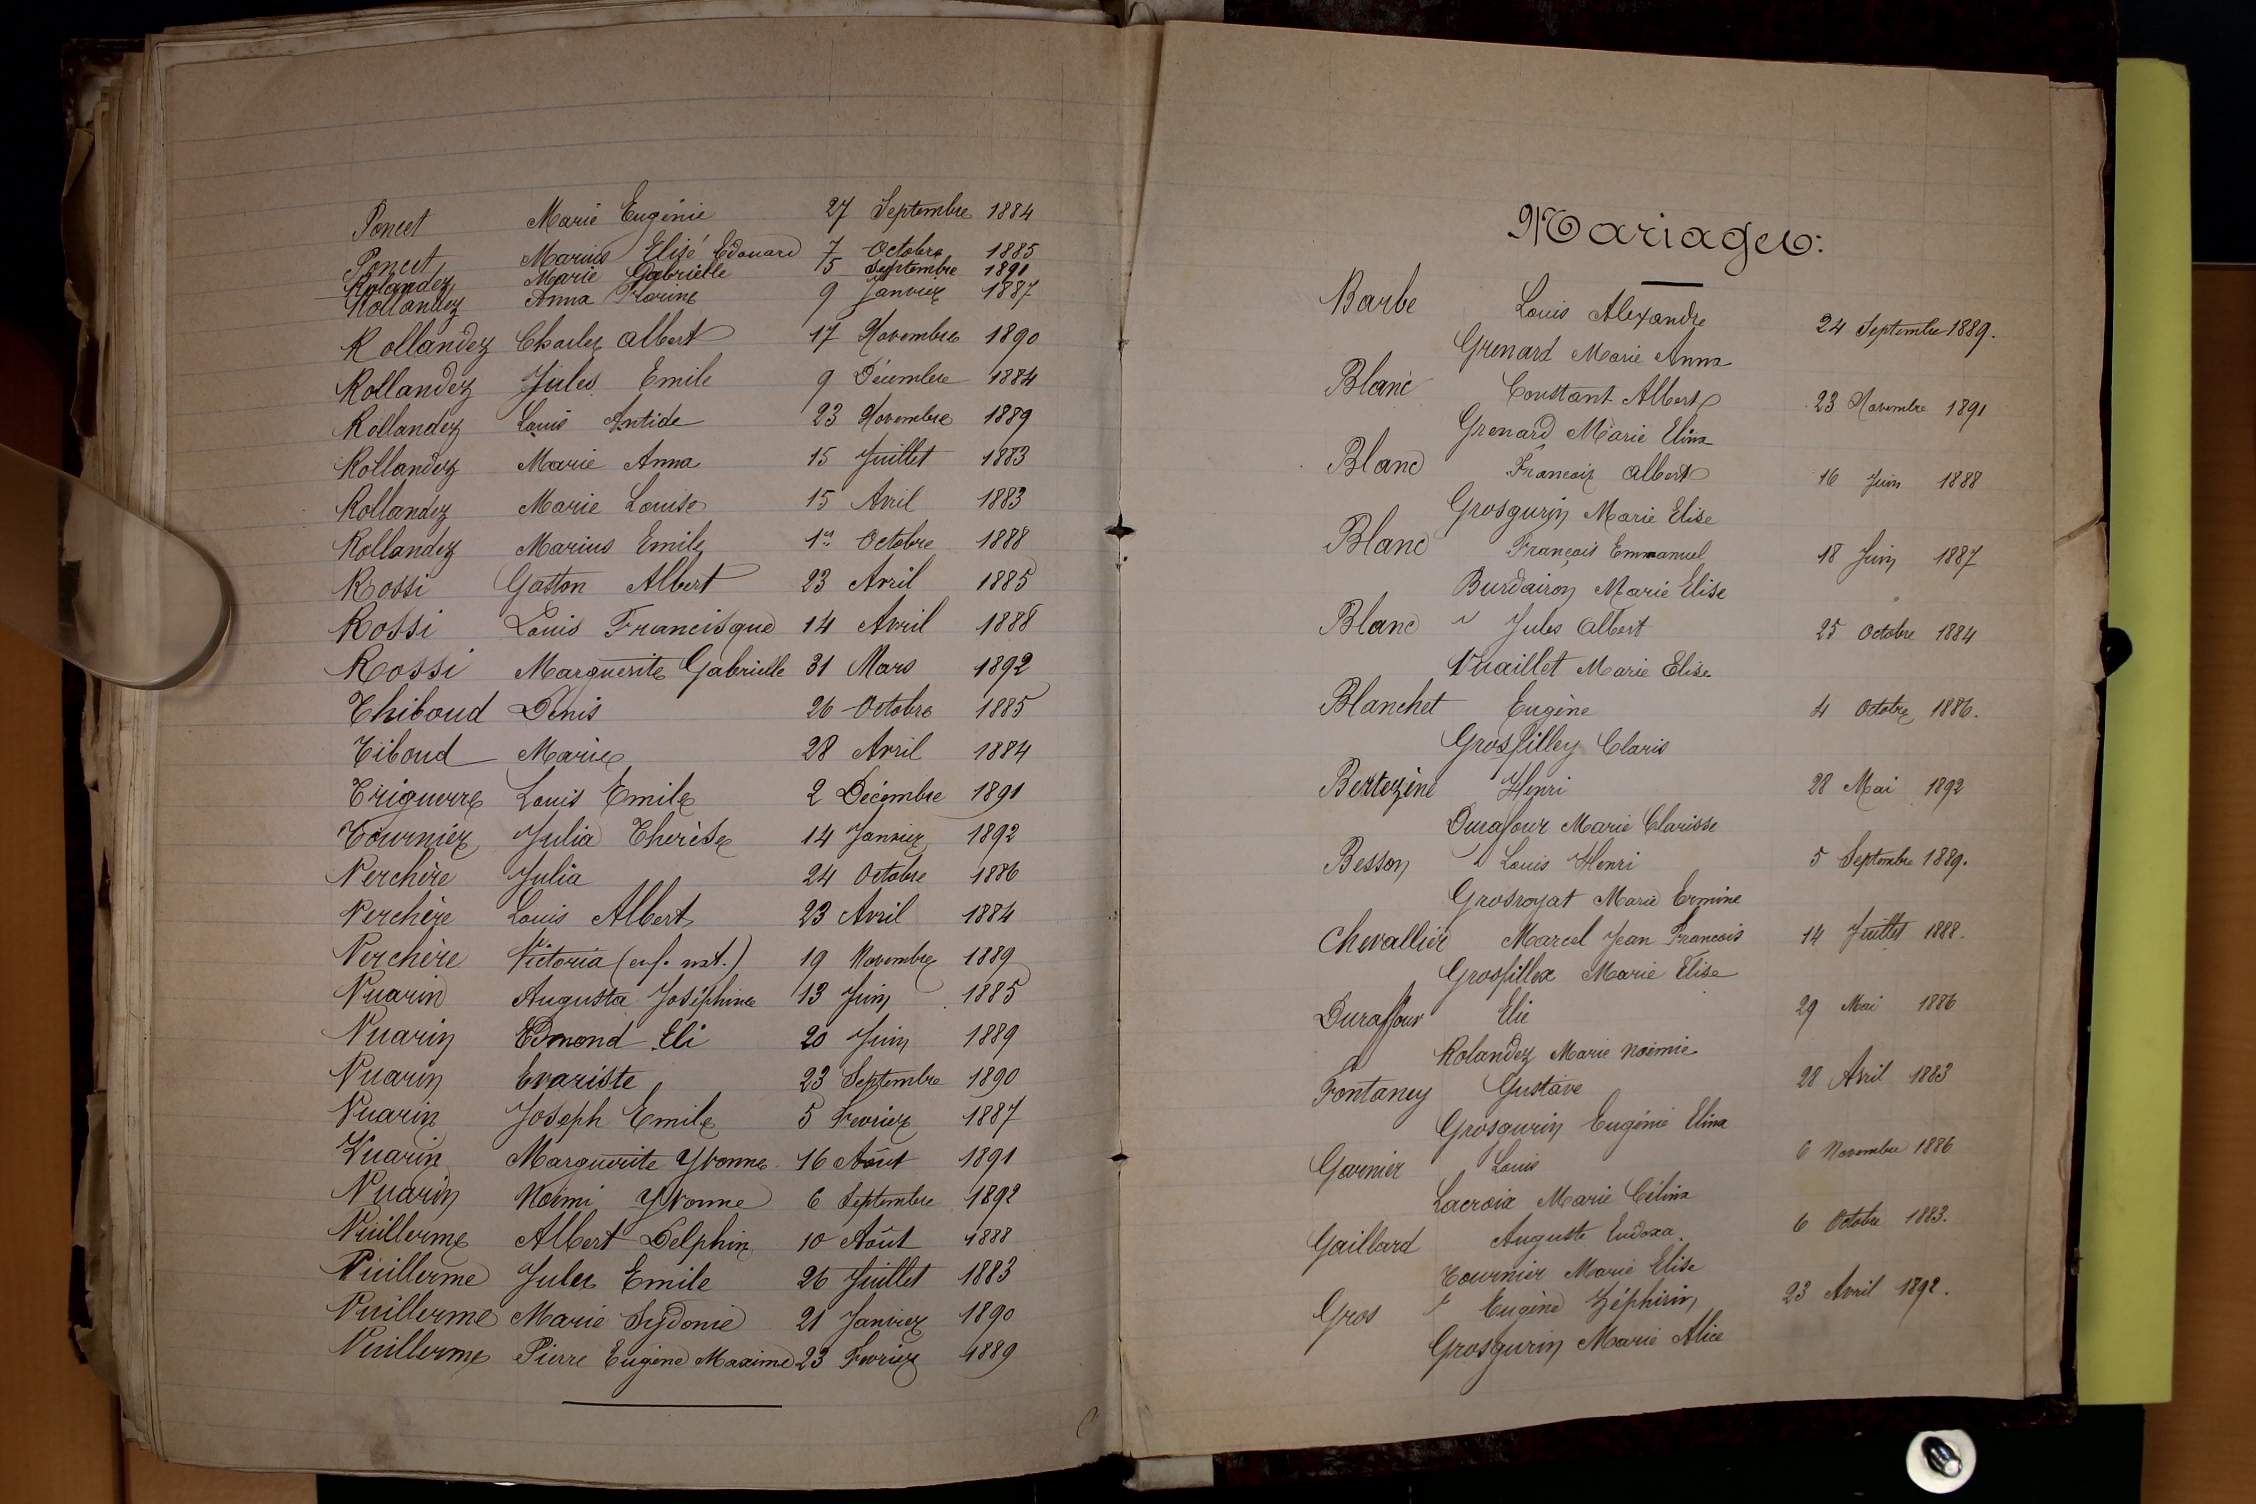 Poncet Marie Eugénie 27 Septembre 1884
Poncet Marius Elisé Edouard 7 Octobre 1885
Rolandez Marie Gabrielle 5 Septembre 1891
Rollandez Anna Florine 9 Janvier 1887
Rollandez Charles Albert 17 Novembre 1890
Rollandez Jules Emile 9 Décembre 1884
Rollandez Louis Antide 23 Novembre 1889
Rollandez Marie Anna 15 Juillet 1883
Rollandez Marie Louise 15 Avril 1883
Rollandez Marius Emile 1er Octobre 1888
Rossi Gaston Albert 23 Avril 1885
Rossi Louis Francisque 14 Avril 1888
Rossi Marguerite Gabrielle 31 Mars 1892
Thiboud Denis 26 Octobre 1885
Tiboud Marie 28 Avril 1884
Triguerre Louis Emile 2 Décembre 1891
Tournier Julia Therèse 14 Janvier 1892
Verchère Julia 24 Octobre 1886
Verchère Louis Albert 23 Avril 1884
Verchère Victoria (enf. nat.) 19 Novembre 1889
Vuarin Augusta Joséphine 13 Juin 1885
Vuarin Edmond Eli 20 Juin 1889
Vuarin Evariste 23 Septembre 1890
Vuarin Joseph Emile 5 Fevrier 1887
Vuarin Marguerite Yvonne 16 Août 1891
Vuarin Noémi Yvonne 6 Septembre 1892
Vuillerme Albert Delphin 10 Août 1888
Vuillerme Jules Emile 26 Juillet 1883
Vuillerme Marie Sydonie 21 Janvier 1890
Vuillerme Pierre Eugène Maxime 23 Fevrier 1889
Mariages:
Barbe Louis Alexandre 24 Septembre 1889.
Grenard Marie Anna
Blanc Constant Albert 23 Novembre 1891
Grenard Marie Elina
Blanc Francois Albert 16 Juin 1888
Grosgurin Marie Elise
Blanc François Emmanuel 18 Juin 1887
Burdairon Marie Elise
Blanc Jules Albert 25 Octobre 1884
Vuaillet Marie Elise
Blanchet Eugène 4 Octobre 1886.
Grosfilley Claris
Bertezène Henri 28 Mai 1892
Durafour Marie Clarisse
Besson Louis Henri 5 Septembre 1889.
Grosroyat Marie Ermine
Chevallier Marcel Jean Francois 14 Juillet 1888.
Grosfillex Marie Elise
Duraffour Elie 29 Mai 1886
Rolandez Marie Noémie
Fontaney Gustave 28 Avril 1883
Grosgurin Eugénie Elina
Garnier Louis 6 Novembre 1886
Lacroix Marie Célina
Gaillard Auguste Eudoxa. 6 Octobre 1883.
Tournier Marie Elise
Gros Eugène Zéphirin 23 Avril 1892.
Grosgurin Marie Alice